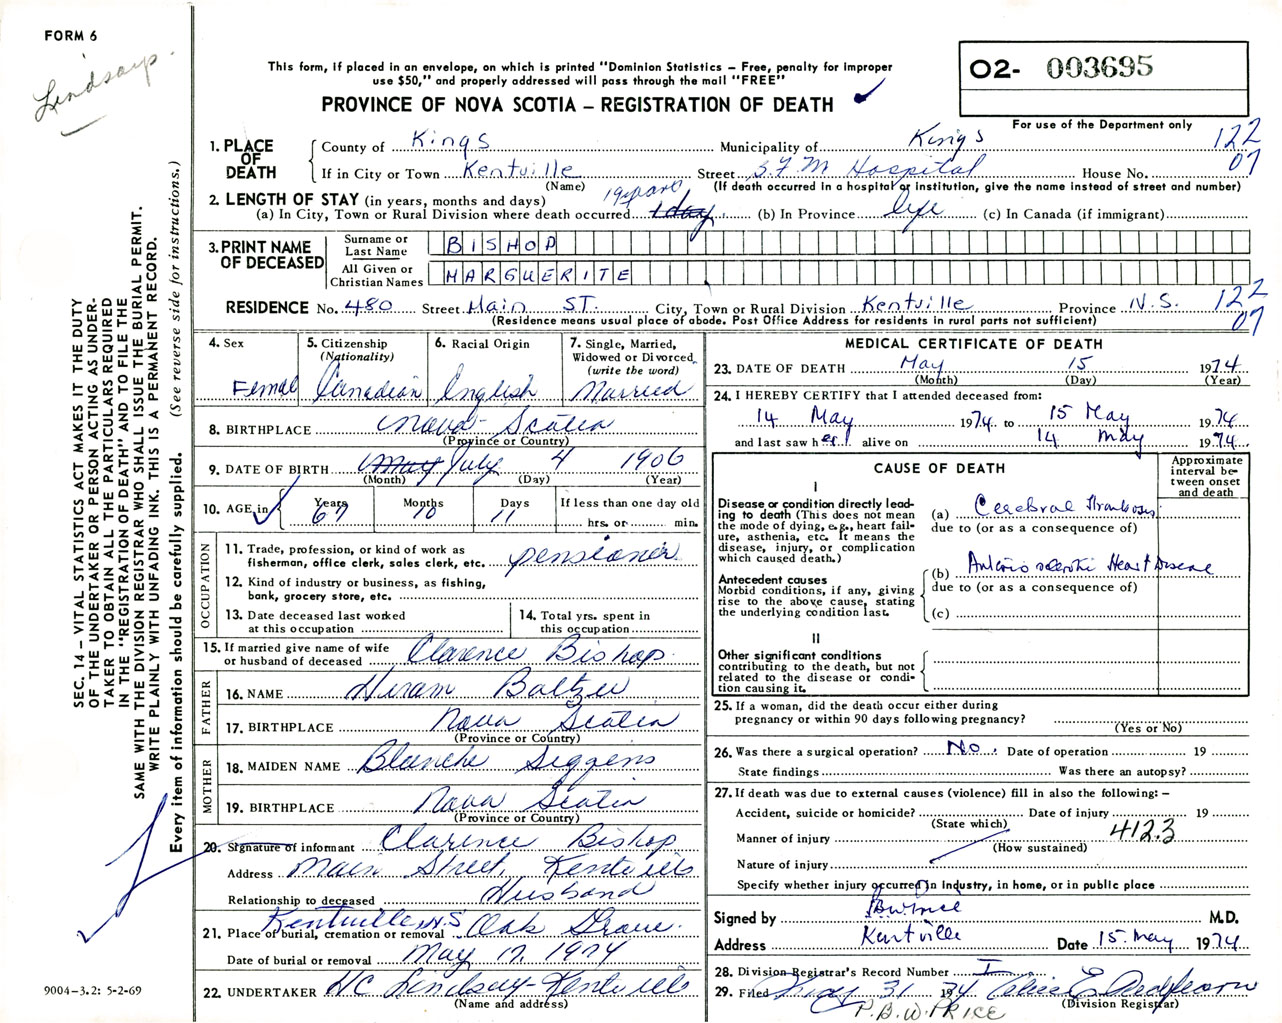 FORM 6
Lindsay.
This form, if placed in an envelope, on which is printed "Dominion Statistics – Free, penalty for improper
use $50," and properly addressed will pass through the mail "FREE"
PROVINCE OF NOVA SCOTIA – REGISTRATION OF DEATH
O2- 003695
For use of the Department only
122
07
1. PLACE OF DEATH
County of Kings Municipality of Kings
If in City or Town Kentville Street B.F.M Hospital House No.
(Name) (If death occurred in a hospital or institution, give the name instead of street and number)
2. LENGTH OF STAY (in years, months and days)
(a) In City, Town or Rural Division where death occurred 19 years 1 day (b) In Province life (c) In Canada (if immigrant)
3. PRINT NAME OF DECEASED
Surname or Last Name BISHOP
All Given or Christian Names MARGUERITE
RESIDENCE No. 480 Street Main ST. City, Town or Rural Division Kentville Province N.S. 122
07
(Residence means usual place of abode. Post Office Address for residents in rural parts not sufficient)
4. Sex Femal
5. Citizenship (Nationality) Canadian
6. Racial Origin English
7. Single, Married, Widowed or Divorced (write the word) Married
8. BIRTHPLACE Nova Scotia
(Province or Country)
9. DATE OF BIRTH May July 4 1906
(Month) (Day) (Year)
10. AGE in Years 67 Months 10 Days 11 If less than one day old
hrs. or min.
OCCUPATION
11. Trade, profession, or kind of work as
fisherman, office clerk, sales clerk, etc. pensioner
12. Kind of industry or business, as fishing,
bank, grocery store, etc.
13. Date deceased last worked
at this occupation
14. Total yrs. spent in
this occupation
15. If married give name of wife
or husband of deceased Clarence Bishop
FATHER
16. NAME Hiram Baltzer
17. BIRTHPLACE Nova Scotia
(Province or Country)
MOTHER
18. MAIDEN NAME Blanche Siggens
19. BIRTHPLACE Nova Scotia
(Province or Country)
20. Signature of informant Clarence Bishop
Address Main Street, Kentville
Relationship to deceased Husband
21. Place of burial, cremation or removal Kentville N.S Oak Grove
Date of burial or removal May 17, 1974
22. UNDERTAKER HC Lindsay - Kentville
(Name and address)
MEDICAL CERTIFICATE OF DEATH
23. DATE OF DEATH May 15 1974
(Month) (Day) (Year)
24. I HEREBY CERTIFY that I attended deceased from:
14 May 1974. to 15 May 1974
and last saw her alive on 14 May 1974.
CAUSE OF DEATH
Approximate interval between onset and death
I
Disease or condition directly leading to death (This does not mean the mode of dying, e.g., heart failure, asthenia, etc. It means the disease, injury, or complication which caused death.)
(a) Cerebral Thrombosis
due to (or as a consequence of)
Antecedent causes
Morbid conditions, if any, giving rise to the above cause, stating the underlying condition last.
(b) Arteriosclerotic Heart Disease
due to (or as a consequence of)
(c)
II
Other significant conditions
contributing to the death, but not related to the disease or condition causing it.
25. If a woman, did the death occur either during
pregnancy or within 90 days following pregnancy?
(Yes or No)
26. Was there a surgical operation? No. Date of operation 19
State findings Was there an autopsy?
27. If death was due to external causes (violence) fill in also the following: –
Accident, suicide or homicide? Date of injury 19
(State which)
Manner of injury 412.3
(How sustained)
Nature of injury
Specify whether injury occurred in industry, in home, or in public place
Signed by M.D.
Address Kentville Date 15. May 1974
28. Division Registrar's Record Number
29. Filed May 31 1974 E. Anderson
(Division Registrar)
P.B.W. PRICE
SEC. 14 – VITAL STATISTICS ACT MAKES IT THE DUTY
OF THE UNDERTAKER OR PERSON ACTING AS UNDER-
TAKER TO OBTAIN ALL THE PARTICULARS REQUIRED
IN THE "REGISTRATION OF DEATH" AND TO FILE THE
SAME WITH THE DIVISION REGISTRAR WHO SHALL ISSUE THE BURIAL PERMIT.
WRITE PLAINLY WITH UNFADING INK. THIS IS A PERMANENT RECORD.
Every item of information should be carefully supplied. (See reverse side for instructions.)
9004-3.2: 5-2-69